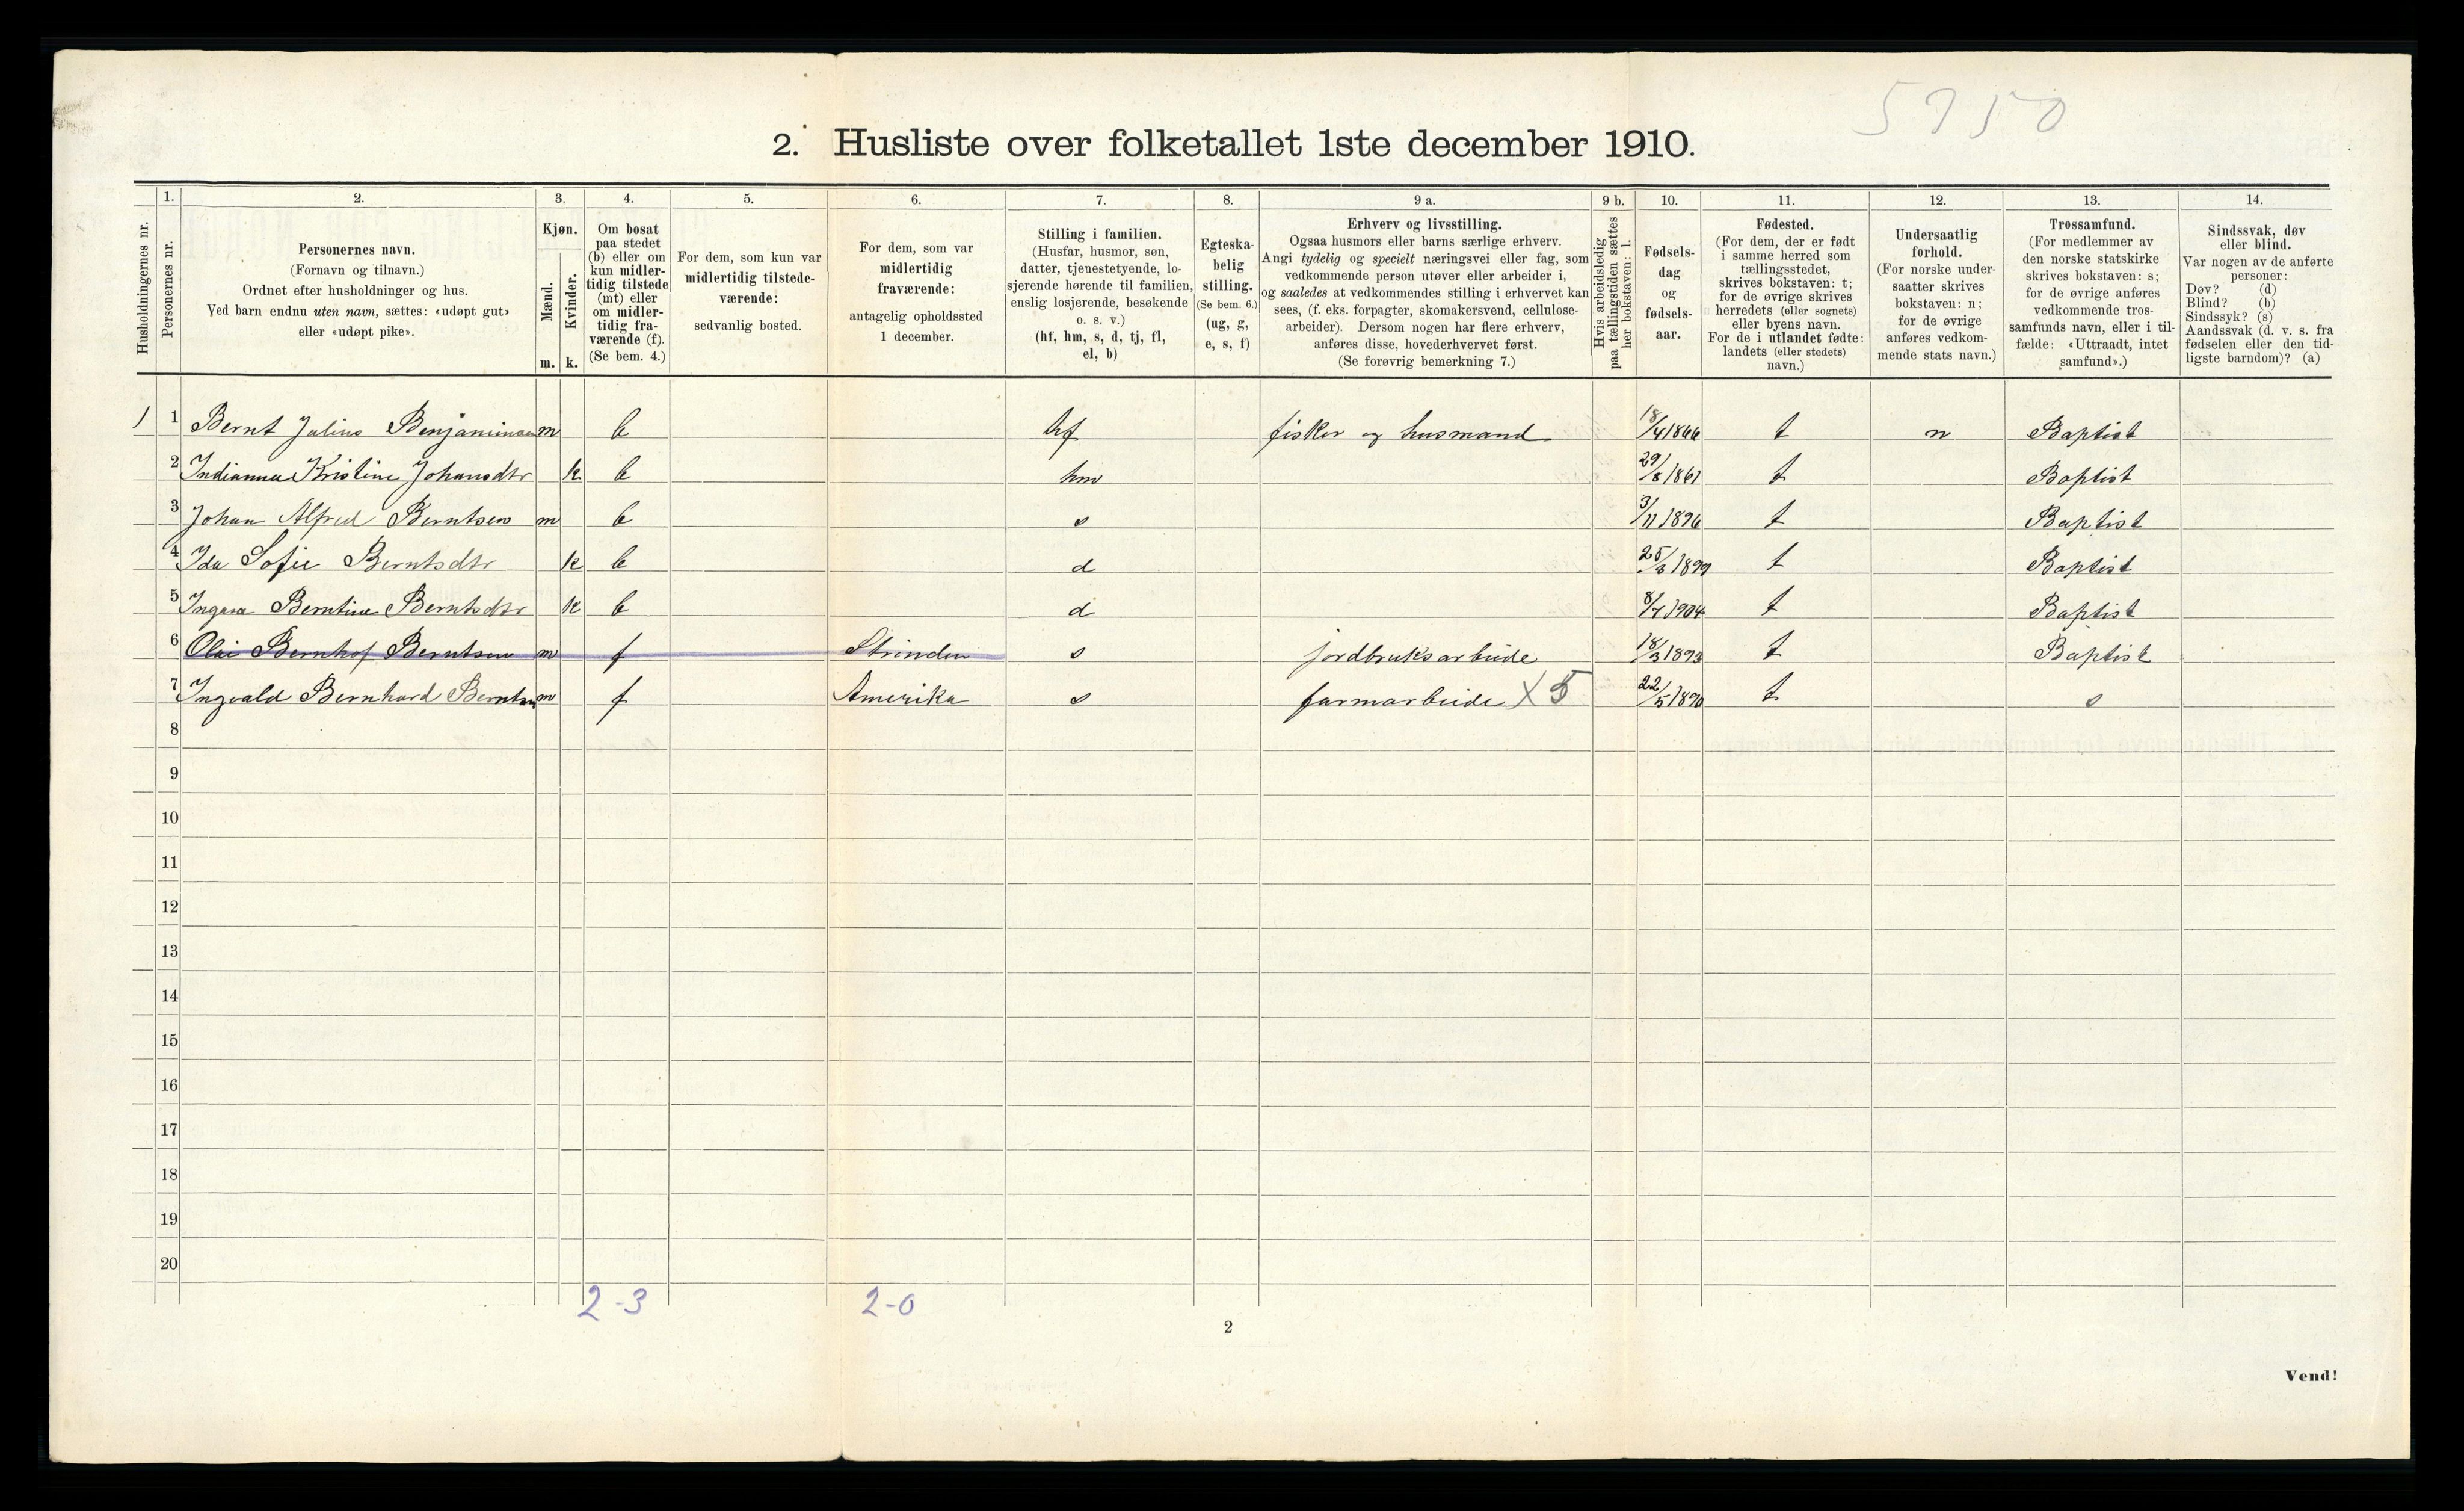 5950
2. Husliste over folketallet 1ste december 1910.
Husholdningernes nr.
1. Personernes nr.
2. Personernes navn.
(Fornavn og tilnavn.)
Ordnet efter husholdninger og hus.
Ved barn endnu uten navn, sættes: «udøpt gut»
eller «udøpt pike».
3. Kjøn.
Mænd. m.
Kvinder. k.
4. Om bosat
paa stedet
(b) eller om
kun midler-
tidig tilstede
(mt) eller
om midler-
tidig fra-
værende (f).
(Se bem. 4.)
5. For dem, som kun var
midlertidig tilstede-
værende:
sedvanlig bosted.
6. For dem, som var
midlertidig
fraværende:
antagelig opholdssted
1 december.
7. Stilling i familien.
(Husfar, husmor, søn,
datter, tjenestetyende, lo-
sjerende hørende til familien,
enslig losjerende, besøkende
o. s. v.)
(hf, hm, s, d, tj, fl,
el, b)
8. Egteska-
belig
stilling.
(Se bem. 6.)
(ug, g,
e, s, f)
9 a. Erhverv og livsstilling.
Ogsaa husmors eller barns særlige erhverv.
Angi tydelig og specielt næringsvei eller fag, som
vedkommende person utøver eller arbeider i,
og saaledes at vedkommendes stilling i erhvervet kan
sees, (f. eks. forpagter, skomakersvend, cellulose-
arbeider). Dersom nogen har flere erhverv,
anføres disse, hovederhvervet først.
(Se forøvrig bemerkning 7.)
9 b. Hvis arbeidsledig
paa tællingstiden sættes
her bokstaven: l.
10. Fødsels-
dag
og
fødsels-
aar.
11. Fødested.
(For dem, der er født
i samme herred som
tællingsstedet,
skrives bokstaven: t;
for de øvrige skrives
herredets (eller sognets)
eller byens navn.
For de i utlandet fødte:
landets (eller stedets)
navn.)
12. Undersaatlig
forhold.
(For norske under-
saatter skrives
bokstaven: n;
for de øvrige
anføres vedkom-
mende stats navn.)
13. Trossamfund.
(For medlemmer av
den norske statskirke
skrives bokstaven: s;
for de øvrige anføres
vedkommende tros-
samfunds navn, eller i til-
fælde: «Uttraadt, intet
samfund».)
14. Sindssvak, døv
eller blind.
Var nogen av de anførte
personer:
Døv? (d)
Blind? (b)
Sindssyk? (s)
Aandssvak (d. v. s. fra
fødselen eller den tid-
ligste barndom)? (a)
1 1 Bernt Julius Benjaminsen m b hf fisker og husmand 18/4 1866 t n Baptist
2 Indianna Kristine Johansdtr k b hm 29/8 1861 t Baptist
3 Johan Alfred Berntsen m b s 3/11 1896 t Baptist
4 Ida Sofie Berntsdtr k b d 25/3 1899 t Baptist
5 Ingna Berntine Berntsdtr k b d 8/7 1904 t Baptist
6 Olai Bernhof Berntsen m f Strinden s jordbruksarbeide 18/3 1893 t Baptist
7 Ingvald Bernhard Berntsen m f Amerika s farmarbeide X 5 22/5 1890 t s
8
9
10
11
12
13
14
15
16
17
18
19
20
2-3 2-0
2
Vend!